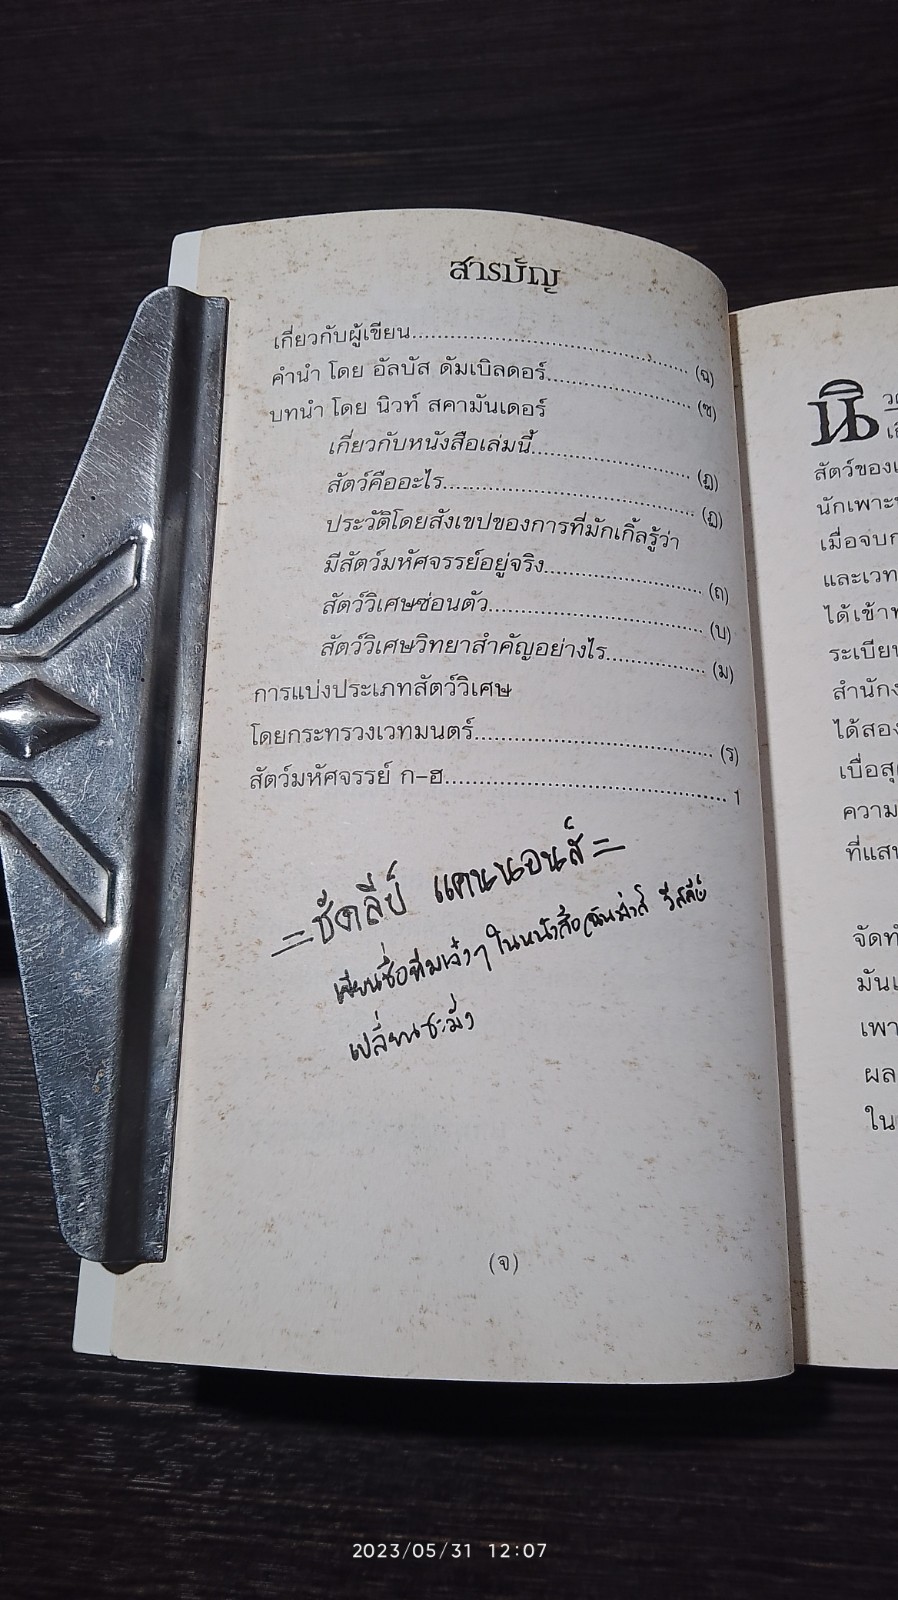 สารบัญ
เกี่ยวกับผู้เขียน........................................ (ฉ)
คำนำ โดย อัลบัส ดัมเบิลดอร์..................... (ซ)
บทนำ โดย นิวท์ สคามันเดอร์
เกี่ยวกับหนังสือเล่มนี้......................... (ฎ)
สัตว์คืออะไร.................................... (ฏ)
ประวัติโดยสังเขปของการที่มักเกิ้ลรู้ว่า
มีสัตว์มหัศจรรย์อยู่จริง......................... (ถ)
สัตว์วิเศษซ่อนตัว.............................. (บ)
สัตว์วิเศษวิทยาสำคัญอย่างไร............... (ม)
การแบ่งประเภทสัตว์วิเศษ
โดยกระทรวงเวทมนตร์................................ (ร)
สัตว์มหัศจรรย์ ก-ฮ.................................... 1
=ชัดลีย์ แคนนอนส์=
เขียนชื่อทีมเจ๋งๆ ในหนังสือ วีสลีย์
เปลี่ยนซะมั่ง
(จ)
นิ
สัตว์ของ
นักเพาะ
เมื่อจบ
และเวท
ได้เข้า
ระเบีย
สำนัก
ได้สอง
เบื่อสุ
ความ
ที่แส
จัดทำ
มัน
เพา
ผล
ใน
2023/05/31 12:07